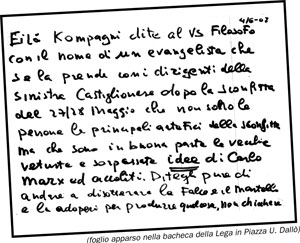 4/6-03
Eilà Kompagni dite al Vs Filosofo
con il nome di un evangelista che
se la prende con i dirigenti della
sinistra Castiglionese dopo la sconfitta
del 27/28 Maggio che non sono le
persone le principali artefici della sconfitta
ma che sono in buona parte le vecchie
vetuste e sorpassate idee di Carlo
Marx ed accoliti. Ditegli pure di
andare a disotterrare la Falce e il Martello
e la adoperi per produrre qualcosa, non chiacchiere
(foglio apparso nella bacheca della Lega in Piazza U. Dallò)